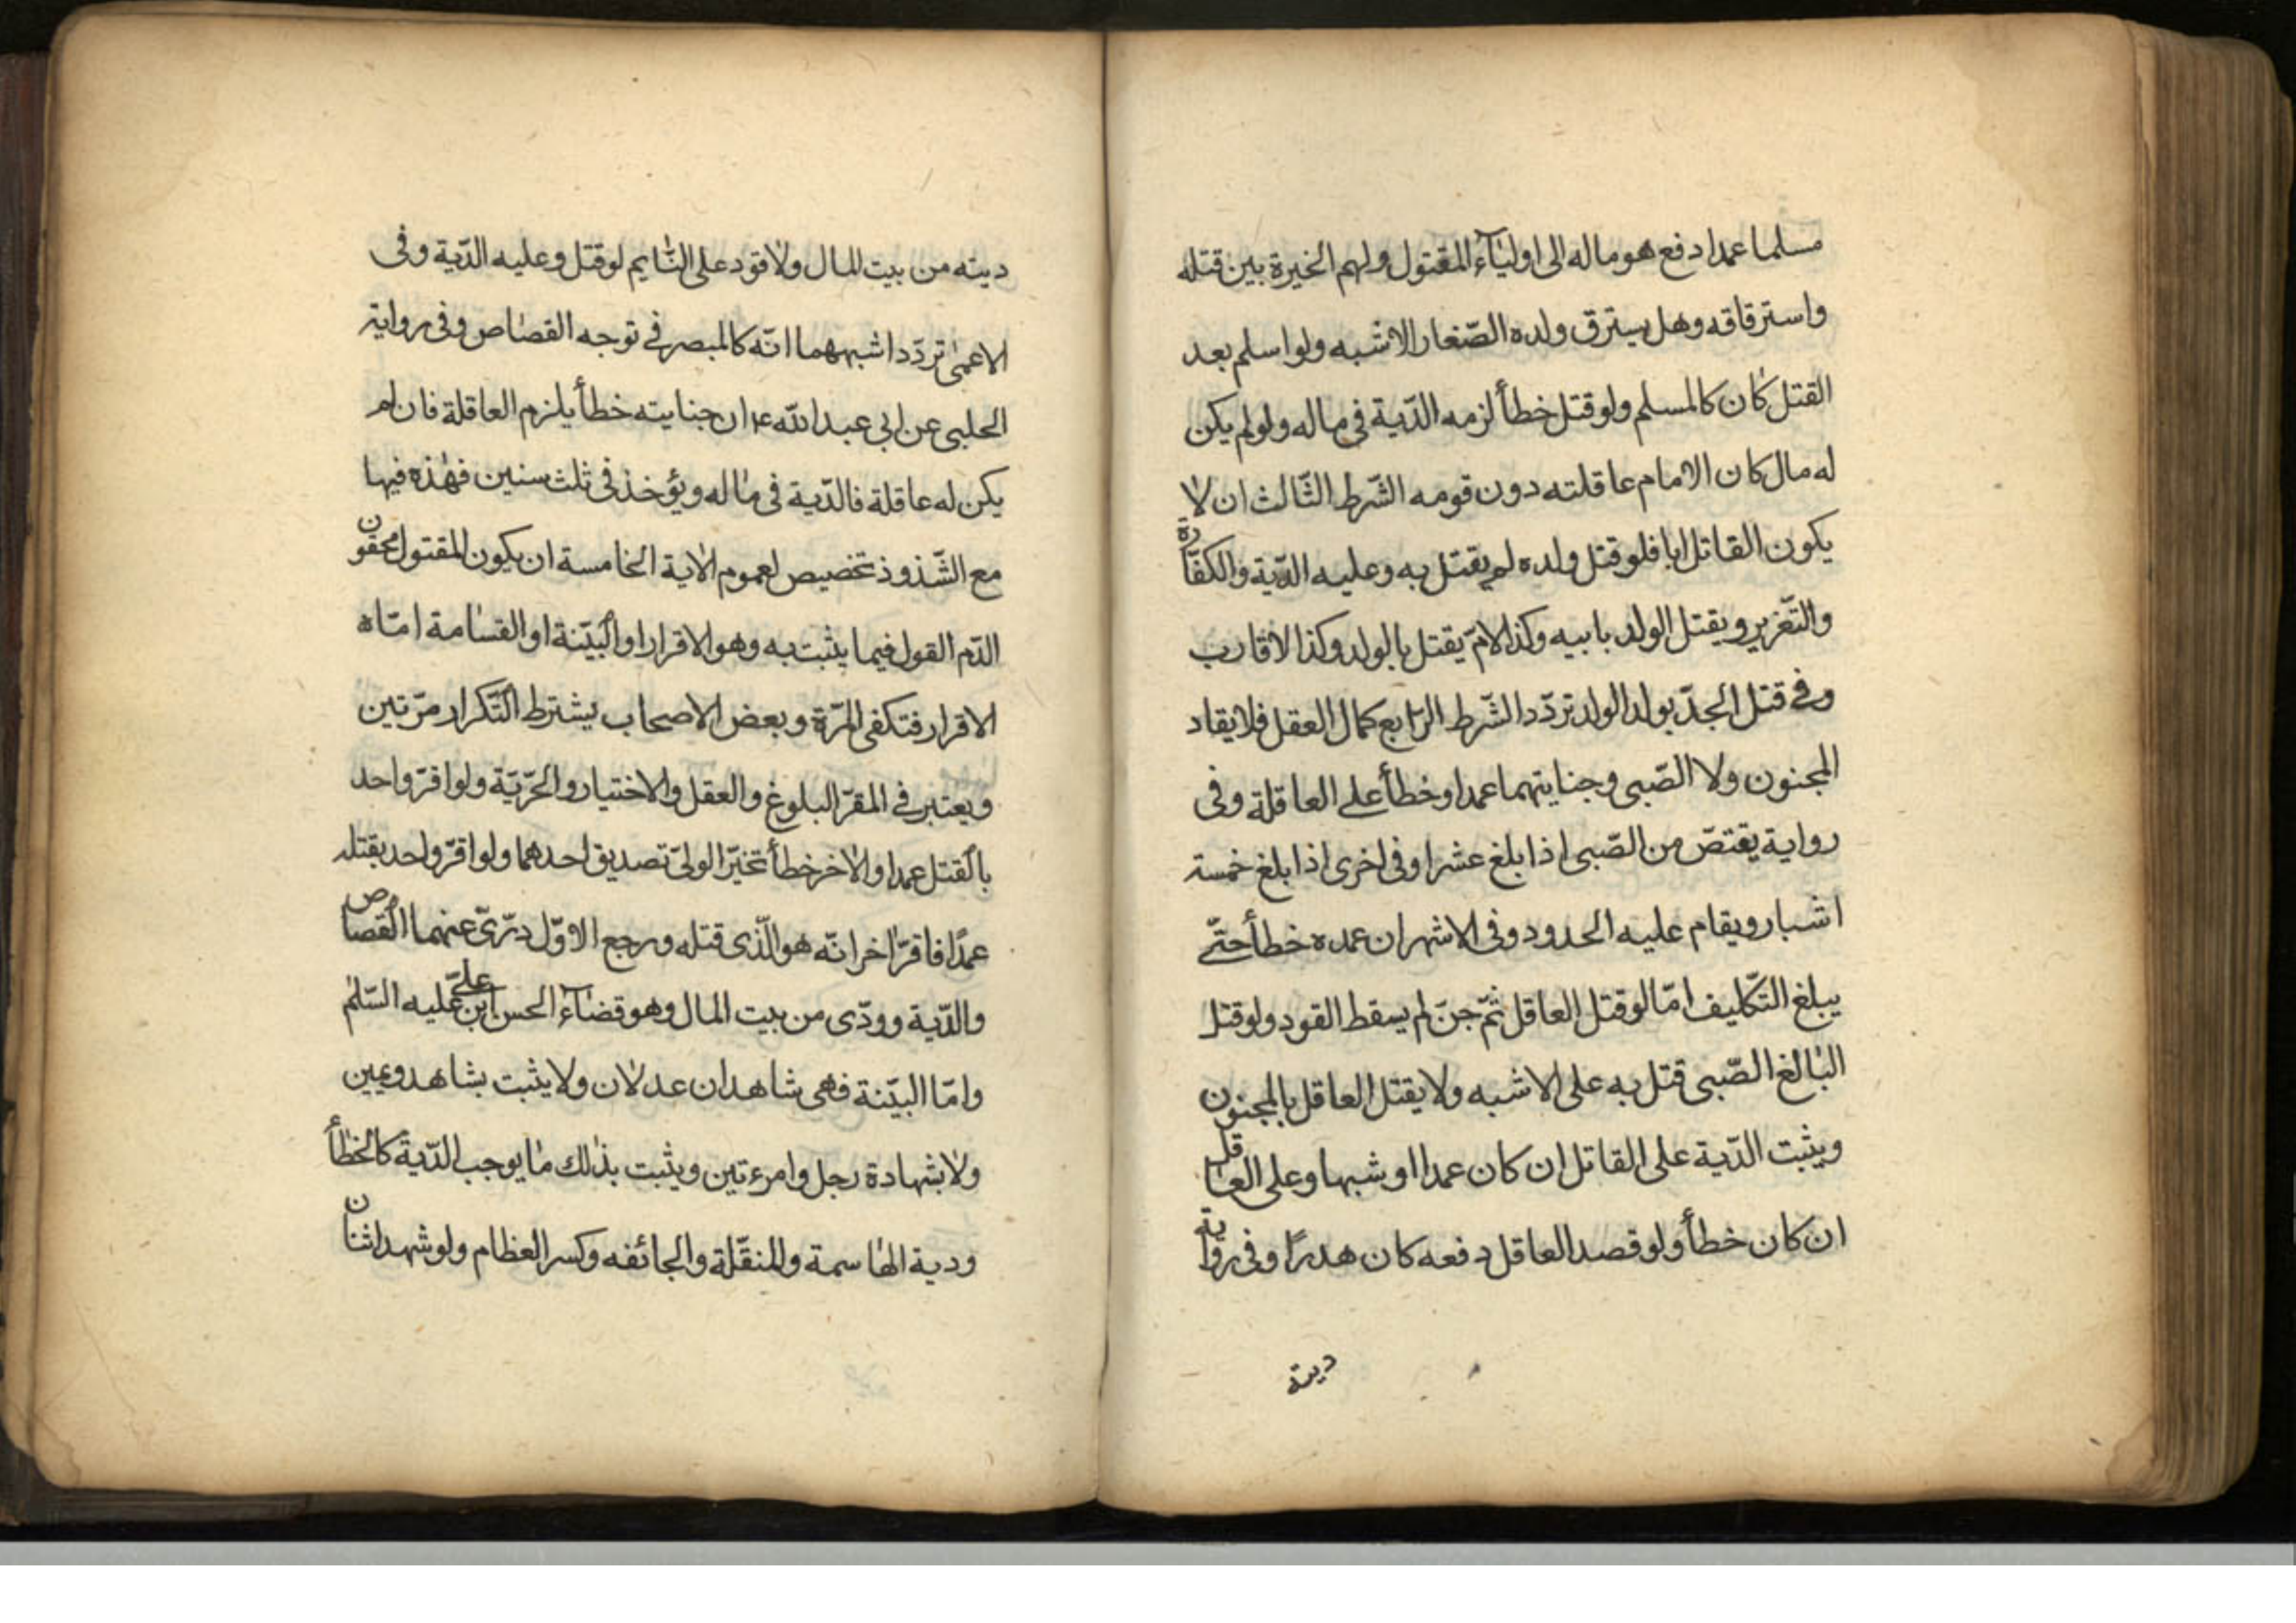 مسلما عمدا دفع هو وماله الى اولياء المقتول ولهم الخيرة بين قتله
واسترقاقه وهل يسترق ولده الصّغار الاشبه ولو اسلم بعد
القتل كان كالمسلم ولو قتل خطأ لزمه الدّية فى ماله ولو لم يكن
له مال كان الامام عاقلته دون قومه الشّرط الثّالث ان لا
يكون القاتل ابا فلو قتل ولده لم يقتل به وعليه الدّية والكفّارة
والتّغزير ويقتل الولد بابيه وكذا الامّ يقتل بالولد وكذا الاقارب
وفى قتل الجدّ بولد الولد تردّد الشّرط الرّابع كمال العقل فلا يقاد
المجنون ولا الصّبى وجنايتهما عمدا وخطأ على العاقلة وفى
رواية يقتصّ من الصّبى اذا بلغ عشرا وفى اخرى اذا بلغ خمسة
اشبار ويقام عليه الحدود وفى الاشهر ان عمده خطأ حتّى
يبلغ التّكليف امّا لو قتل العاقل ثمّ جنّ لم يسقط القود ولو قتل
البالغ الصّبى قتل به على الاشبه ولا يقتل العاقل بالمجنون
ويثبت الدّية على القاتل ان كان عمدا او شبها وعلى العاقل
ان كان خطأ ولو قصد العاقل دفعه كان هدرًا وفى رواية
ديته
ديته من بيت المال ولا قود على النّايم لو قتل وعليه الدّية وفى
الاعمى تردّد اشبههما انّه كالمبصر فى توجه القصاص وفى رواية
الحلبى عن ابى عبد الله ع ان جنايته خطأ يلزم العاقلة فان لم
يكن له عاقلة فالدّية فى ماله ويؤخذ فى ثلث سنين فهذه فيها
مع الشّذوذ تخصيص لعموم الاية الخامسة ان يكون المقتول محقون
الدّم القول فيما يثبت به وهو الاقرار او البيّنة او القسامة امّا ه
الاقرار فتكفى المرّة وبعض الاصحاب يشترط التّكرار مرّتين
ويعتبر فى المقرّ البلوغ والعقل والاختيار والحرّيّة ولو اقرّ واحد
بالقتل عمدا والاخر خطأ تخيّر الولىّ تصديق احدهما ولو اقرّ واحد بقتله
عمدًا فاقرّ اخر انّه هو الّذى قتله ورجع الاوّل درّئ عنهما القصاص
والدّية وودّى من بيت المال وهو قضاء الحسن ابن علىّ عليه السّلم
وامّا البيّنة فهى شاهدان عدلان ولا يثبت بشاهد ويمين
ولا بشهادة رجل وامرءتين ويثبت بذلك ما يوجب الدّية كالخطأ
ودية الهاسمة والمنقّلة والجائفه وكسر العظام ولو شهد اثنان